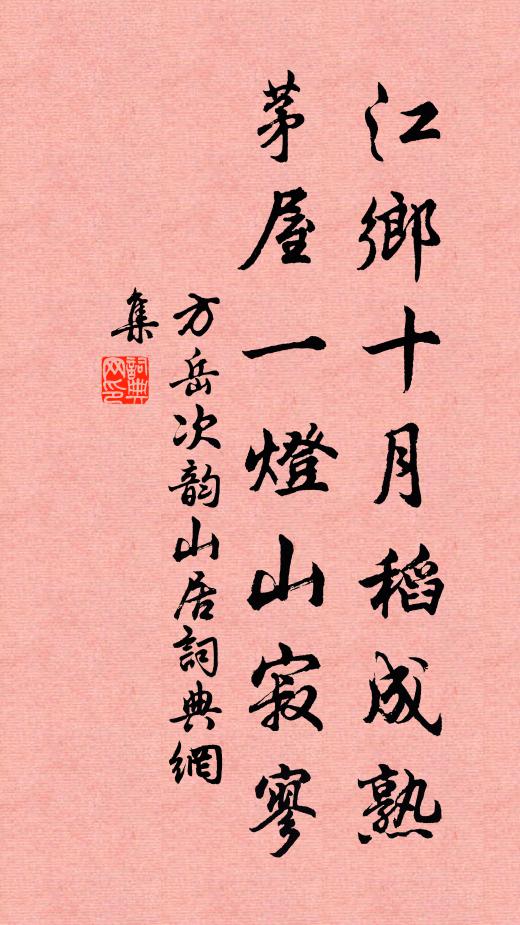 江鄉十月稻成熟
茅屋一燈山寂寥
方岳次韵山居詞典網
集
詞典
网印